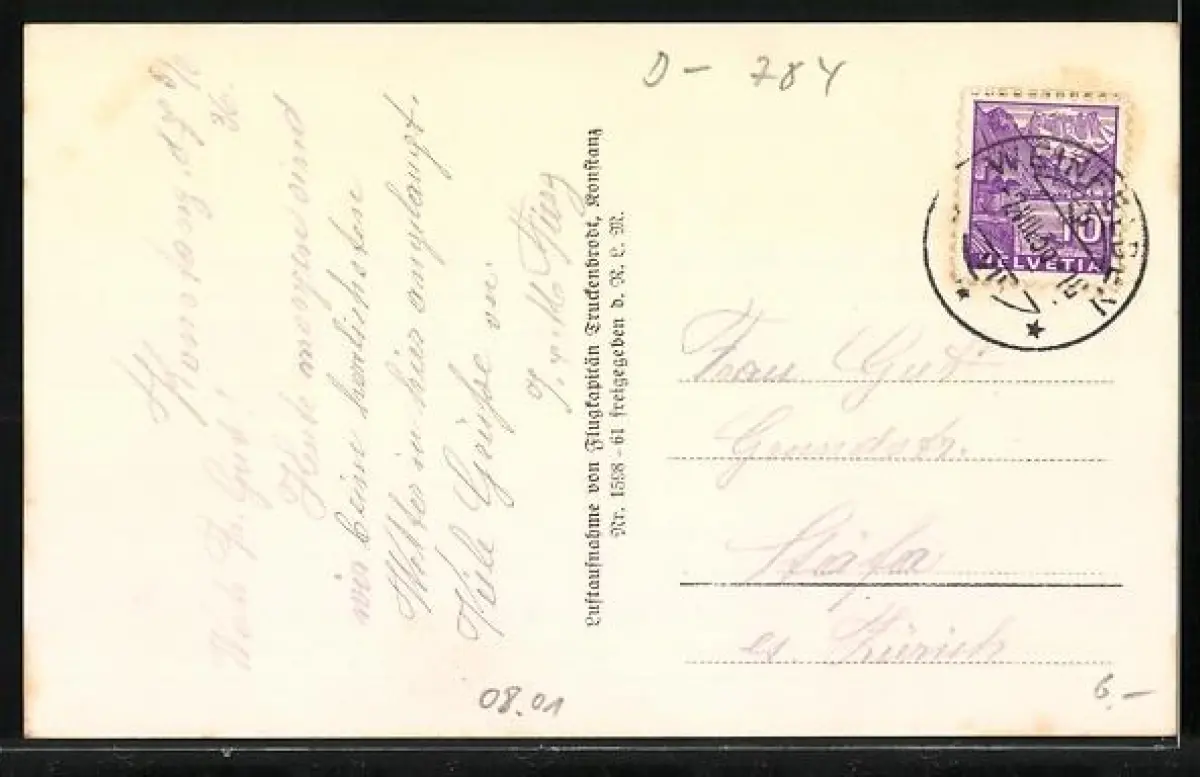 D- 784
Konstanz, d. 7.8.
36.
Frau Gut!
Heute morgen sind
wir beim herrlichsten
Wetter in hier angelangt.
Viele Grüße von
Luftaufnahme von Flugkapitän Truckenbrodt, Konstanz
Nr. 1598-61 freigegeben d. R. L. M.
WEINFELDEN
10
HELVETIA
Frau Gut
Grundstr.
Stäfa
Zürich
08.01
6.-